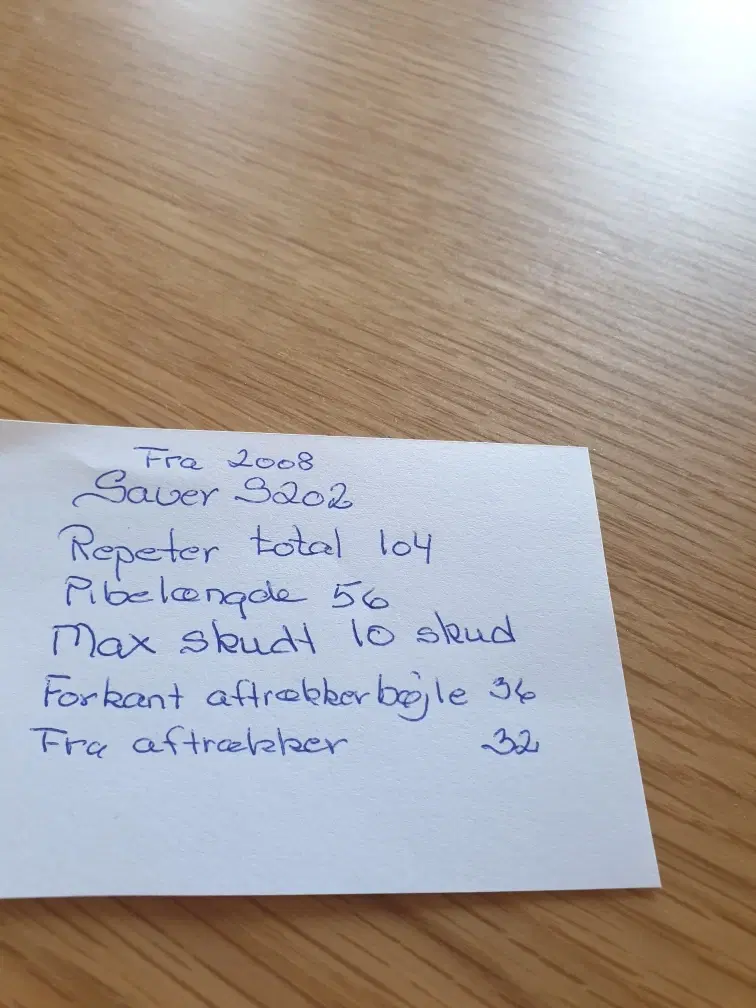 Fra 2008
Sauer S202
Repeter total 104
Pibelængde 56
Max skudt 10 skud
Forkant aftrækkerbøjle 36
Fra aftrækker 32